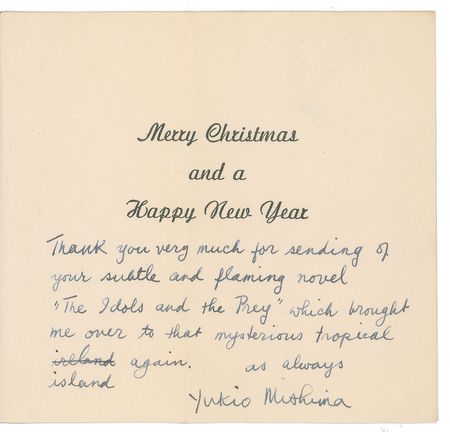 Merry Christmas
and a
Happy New Year
Thank you very much for sending of
your subtle and flaming novel
"The Idols and the Prey" which brought
me over to that mysterious tropical
ireland again. as always
island
Yukio Mishima